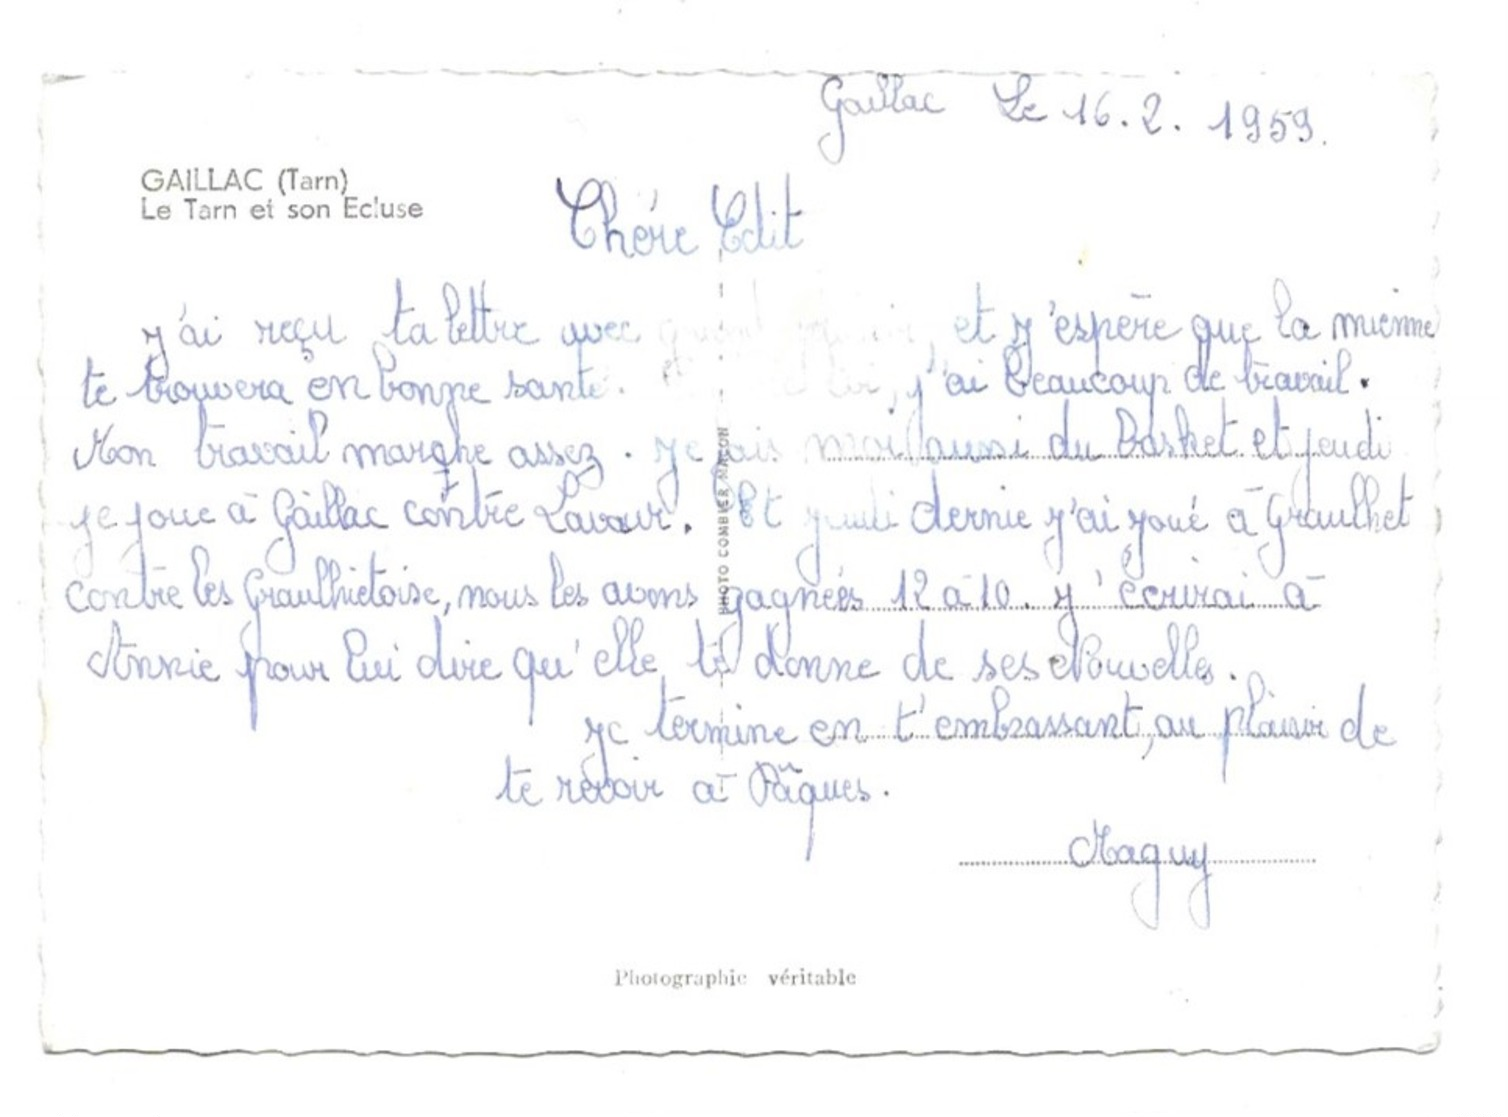 Gaillac Le 16.2.1959.
GAILLAC (Tarn)
Le Tarn et son Ecluse
Chére Edit
j'ai reçu ta lettre avec et j'espère que la mienne
te trouvera en bonne santé. j'ai beaucoup de travail.
Mon travail marche assez. je fais moi aussi du Basket et jeudi
je joue à Gaillac contre Lavaur. Et jeudi dernie j'ai joué à Graulhet
contre les Graulhietoise, nous les avons gagnées 12 à 10. j'écrirai à
Annie pour lui dire qu'elle te donne de ses Nouvelles.
je termine en t'embrassant, au plaisir de
te revoir à Pâques.
Maguy
PHOTO COMBIER MACON
Photographie véritable